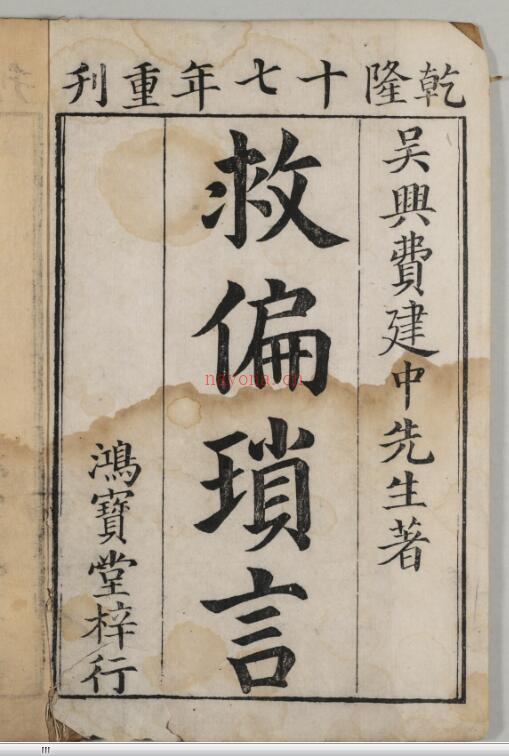 乾隆十七年重刋
吴興費建中先生著
救偏瑣言
鴻寶堂梓行
ndyona.cn